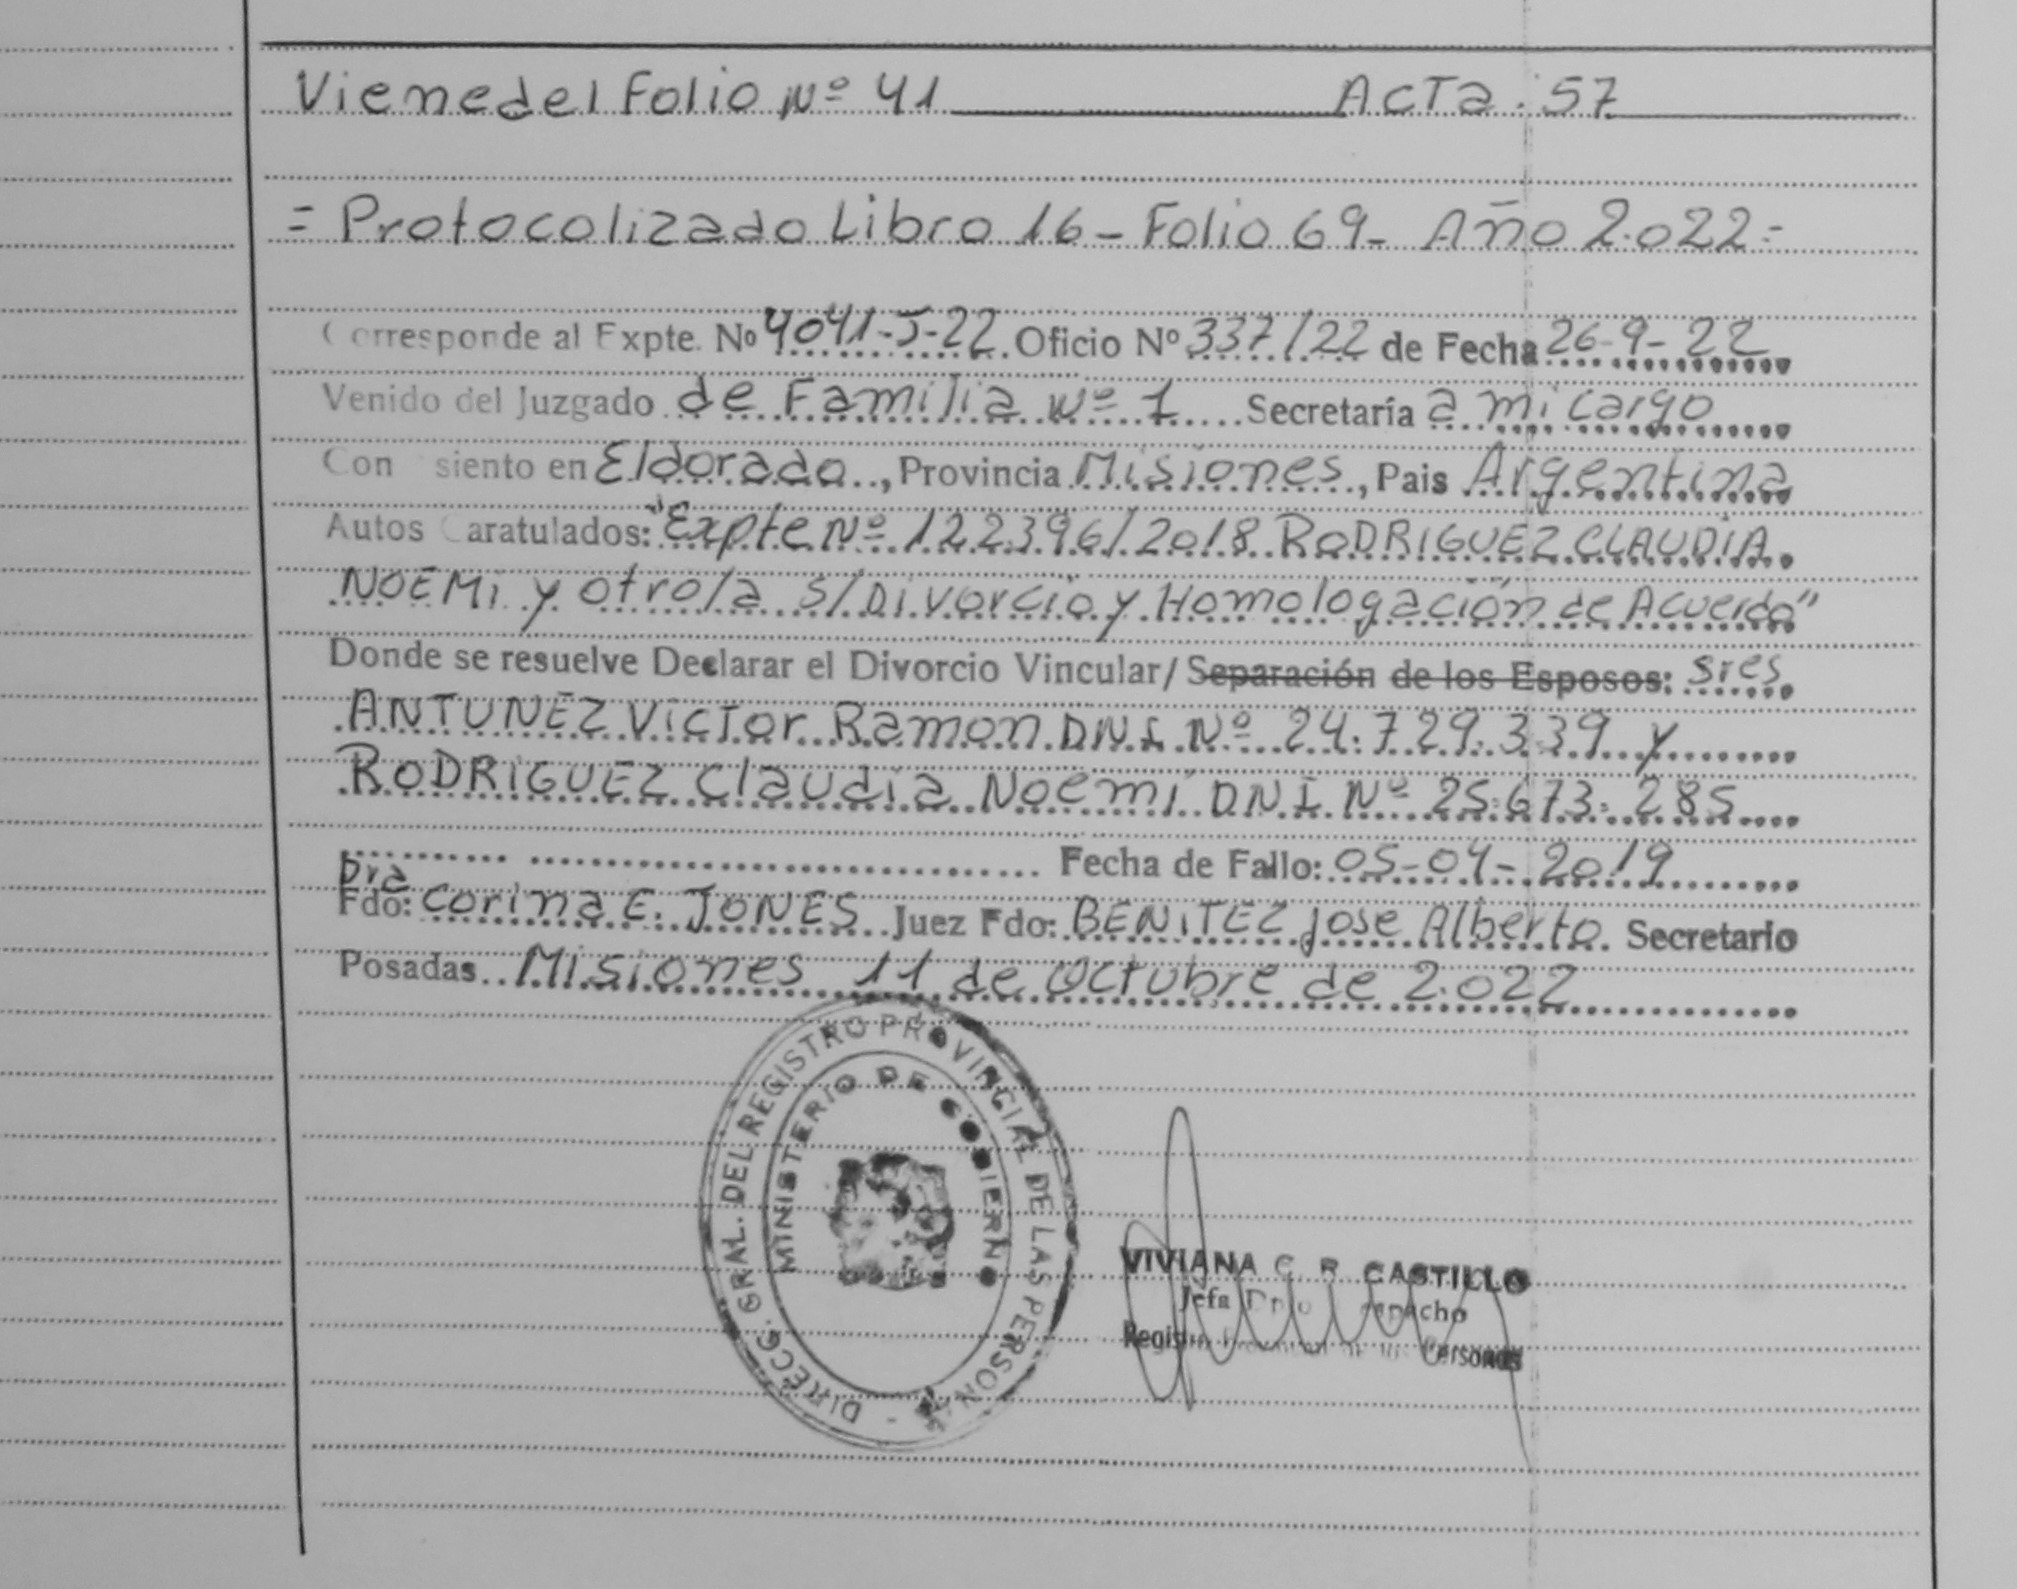 Viene del Folio Nº 41 Acta. 57
= Protocolizado Libro 16 - Folio 69 - Año 2.022 =
Corresponde al Expte. Nº 4041-J-22. Oficio Nº 337/22 de Fecha 26-9-22
Venido del Juzgado de Familia Nº 1 Secretaría a mi cargo
Con siento en Eldorado, Provincia Misiones, Pais Argentina
Autos Caratulados: "Expte Nº 122396/2018 RODRIGUEZ CLAUDIA
NOEMI y otro/a S/Divorcio y Homologación de Acuerdo"
Donde se resuelve Declarar el Divorcio Vincular/ Separación de los Esposos: sres
ANTUNEZ Victor Ramon DNI Nº 24.729.339 y
RODRIGUEZ Claudia Noemi DNI Nº 25.673.285
Fecha de Fallo: 05-04-2019
Dra
Fdo: Corina E. JONES Juez Fdo: BENITEZ Jose Alberto. Secretario
Posadas Misiones 11 de Octubre de 2.022
DIRECC. GRAL. DEL REGISTRO PROVINCIAL DE LAS PERSONAS -
MINISTERIO DE GOBIERNO
VIVIANA C. R. CASTILLO
Jefa
Personas